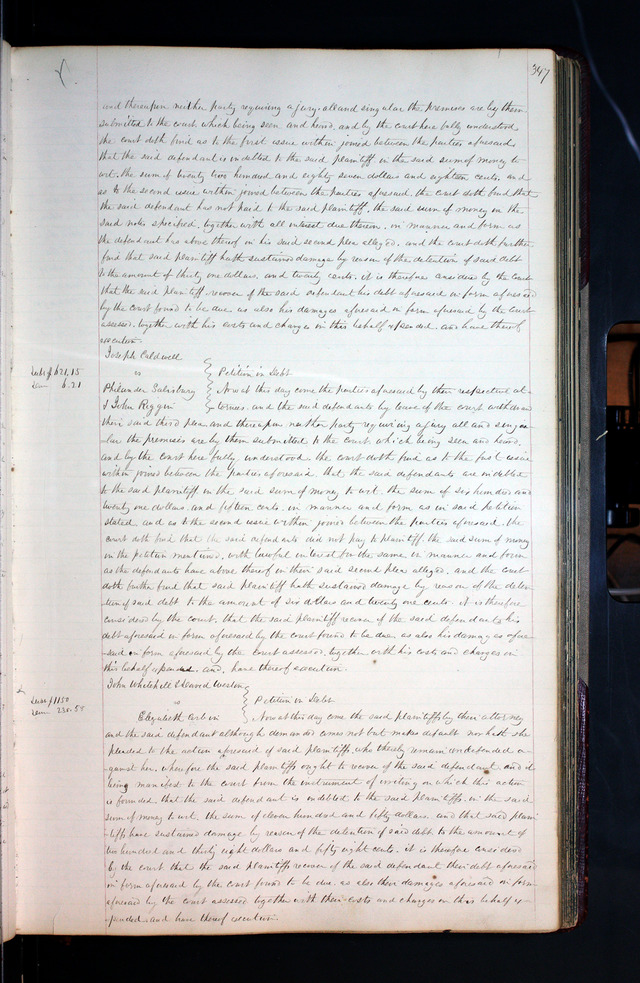 347
and thereupon neither party requiring a jury, all and singular the premises are by them
submitted to the court which being seen and heard, and by the court here fully understood
the court doth find as to the first issue within joined between the parties aforesaid,
that the said defendant is indebted to the said plaintiff in the said sum of money to
wit, the sum of twenty two hundred and eighty seven dollars and eighteen cents, and
as to the second issue within joined between the parties aforesaid, the court doth find that
the said defendant has not paid to the said plaintiff, the said sum of money in the
said notes specified, together with all interest due thereon, in manner and form as
the defendant has above thereof in his said second plea alleged, and the court doth further
find that said plaintiff hath sustained damage by reason of the detention of said debt
to the amount of thirty one dollars, and twenty cents, it is therefore considered by the Court
that the said plaintiff recover of the said defendant his debt aforesaid in form aforesaid
by the court found to be due, as also his damages aforesaid in form aforesaid by the Court
assessed, together with his costs and charges in this behalf expended, and have thereof
execution.
Joseph Caldwell
Debt $621,15
vs Petition in Debt
Dam 6.21
Philander Salisbury Now at this day come the parties aforesaid by their respective at-
& John Riggin tornies, and the said defendants by leave of the court withdraw
their said third plea and thereupon neither party requiring a jury all and singu
lar the premises are by them submitted to the court, which being seen and heard,
and by the court here fully understood the court doth find as to the first issue
within joined between the parties aforesaid, that the said defendants are indebted
to the said plaintiff in the said sum of money to wit, the sum of six hundred and
twenty one dollars, and fifteen cents, in manner and form as in said petition
stated, and as to the second issue within joined between the parties aforesaid, the
court doth find that the said defendants did not pay to plaintiff, the said sum of money
in the petition mentioned, with lawful interest for the same in manner and form
as the defendants have above thereof in their said second plea alleged, and the court
doth further find that said plaintiff hath sustained damage by reason of the deten
tion of said debt to the amount of six dollars and twenty one cents. it is therefore
considered by the court, that the said plaintiff recover of the said defendants his
debt aforesaid in form aforesaid by the court found to be due, as also his damages afore
said in form aforesaid by the Court assessed, together with his costs and charges in
this behalf expended, and, have thereof execution.
John Whitehill & David Weston
Debt $1150
vs Petition in Debt
Dam 238.58
Elizabeth Now at this day come the said plaintiffs by their attorney
and the said defendant although demanded comes not but makes default nor hath she
pleaded to the action aforesaid of said plaintiffs, who thereby remain undefended a-
gainst her, wherefore the said plaintiffs ought to recover of the said defendant and it
being manifest to the court from the instrument of writing on which this action
is founded that the said defendant is indebted to the said plaintiffs in the said
sum of money to wit, the sum of eleven hundred and fifty dollars, and that said plain
-tiffs have sustained damage by reason of the detention of said debt to the amount of
two hundred and thirty eight dollars and fifty eight cents, it is therefore considered
by the court that the said plaintiffs recover of the said defendant their debt aforesaid
in form aforesaid by the court found to be due, as also their damages aforesaid in form
aforesaid by the court assessed together with their costs and charges in this behalf ex-
-pended and have thereof execution.